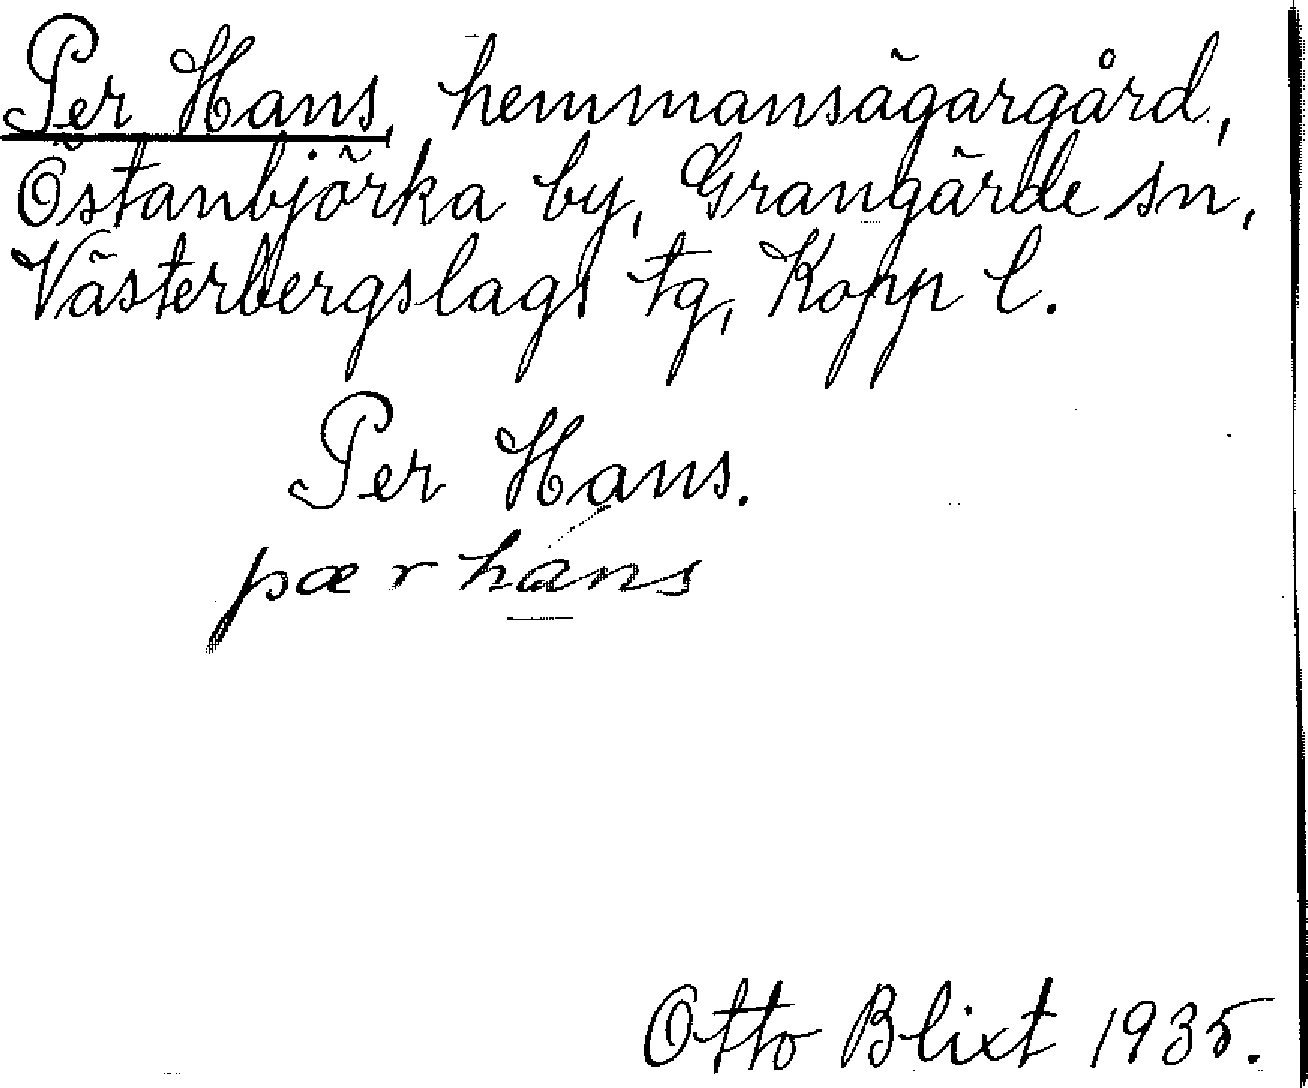 Per Hans, hemmansägargård,
Östanbjörka by, Grangärde sn,
Västerbergslags tg, Kopp l.
Per Hans.
pær hans
Otto Blixt 1935.